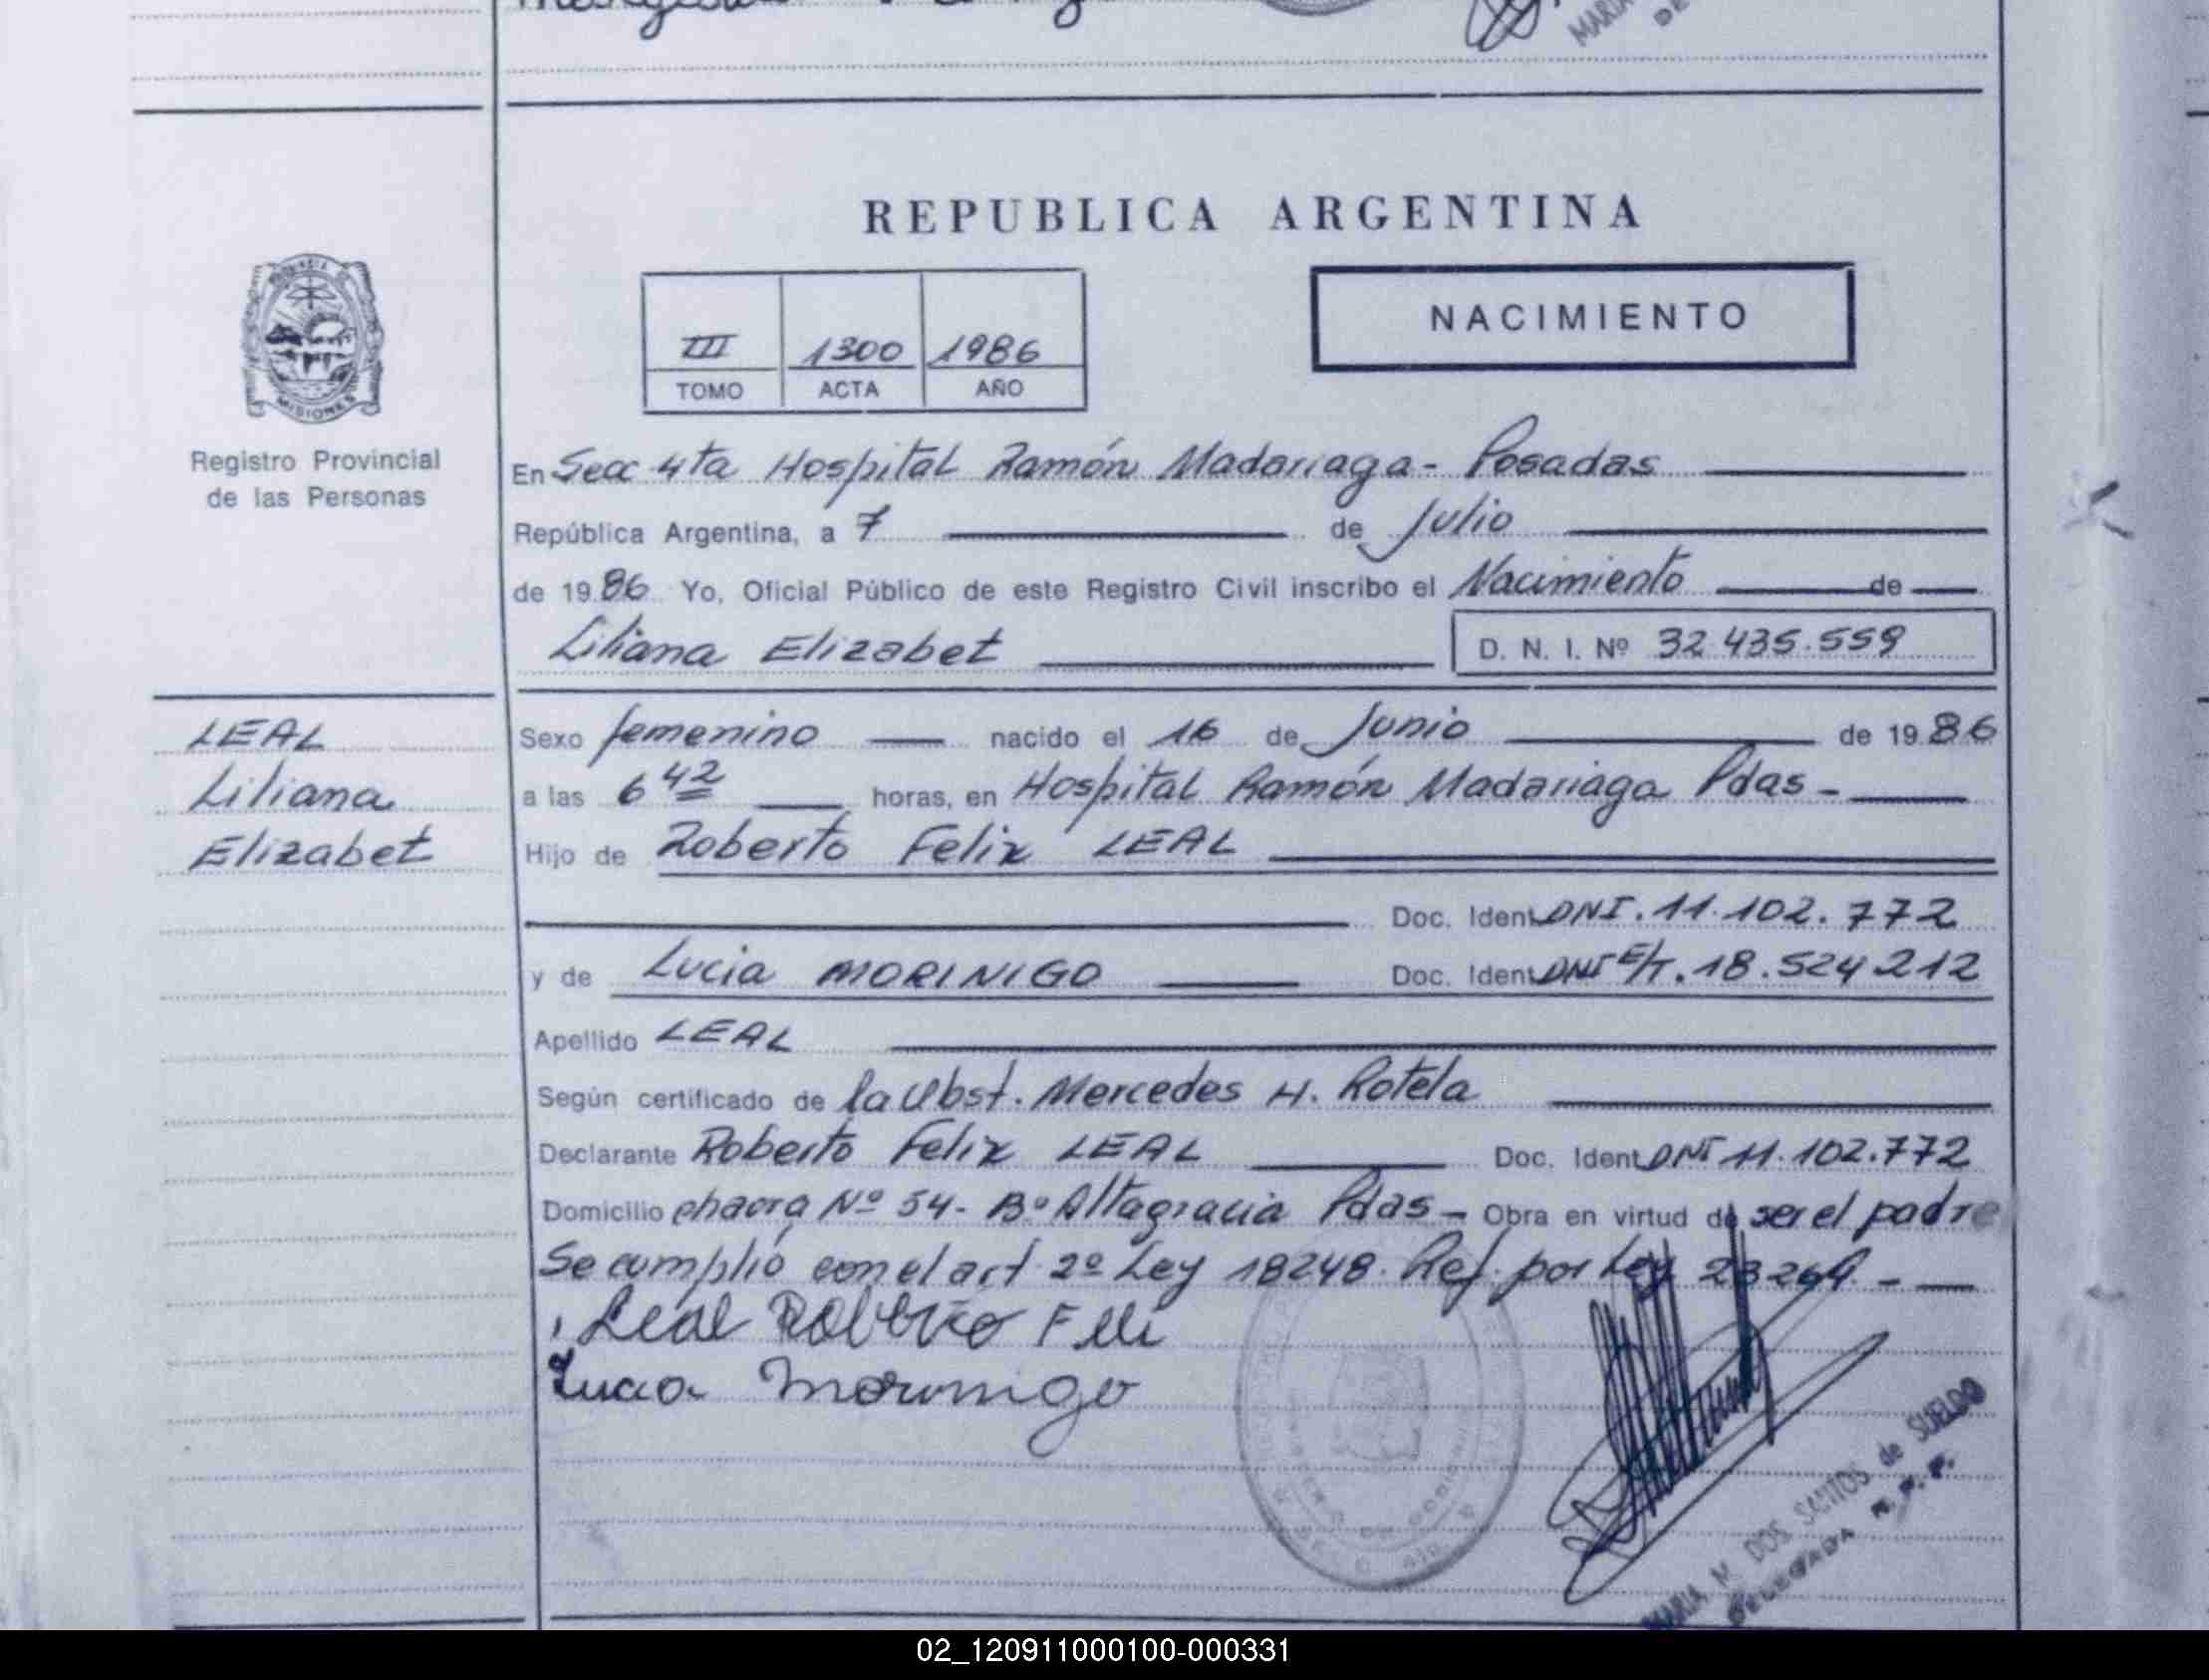 REPUBLICA ARGENTINA
III 1300 1986
TOMO ACTA AÑO
NACIMIENTO
MISIONES
Registro Provincial
de las Personas
En Secc 4ta Hospital Ramón Madariaga - Posadas
República Argentina, a 7 de Julio
de 1986 Yo, Oficial Público de este Registro Civil inscribo el Nacimiento de
Liliana Elizabet D. N. I. Nº 32.435.559
LEAL
Liliana
Elizabet
Sexo femenino nacido el 16 de Junio de 1986
a las 6 42 horas, en Hospital Ramón Madariaga Pdas -
Hijo de Roberto Felix LEAL
Doc. Ident DNI. 11.102.772
y de Lucia MORINIGO Doc. Ident DNI E/T. 18.524212
Apellido LEAL
Según certificado de la Obst. Mercedes H. Rotela
Declarante Roberto Felix LEAL Doc. Ident DNI 11.102.772
Domicilio chacra Nº 54 - Bº Altagracia Pdas - Obra en virtud de ser el padre
Se cumplió con el art 2º Ley 18248. Ref. por Ley 23264. -
Leal Roberto Feli
Lucia Morinigo
MARIA M. DOS SANTOS de SUELDO
DELEGADA R. P. P.
02_120911000100-000331